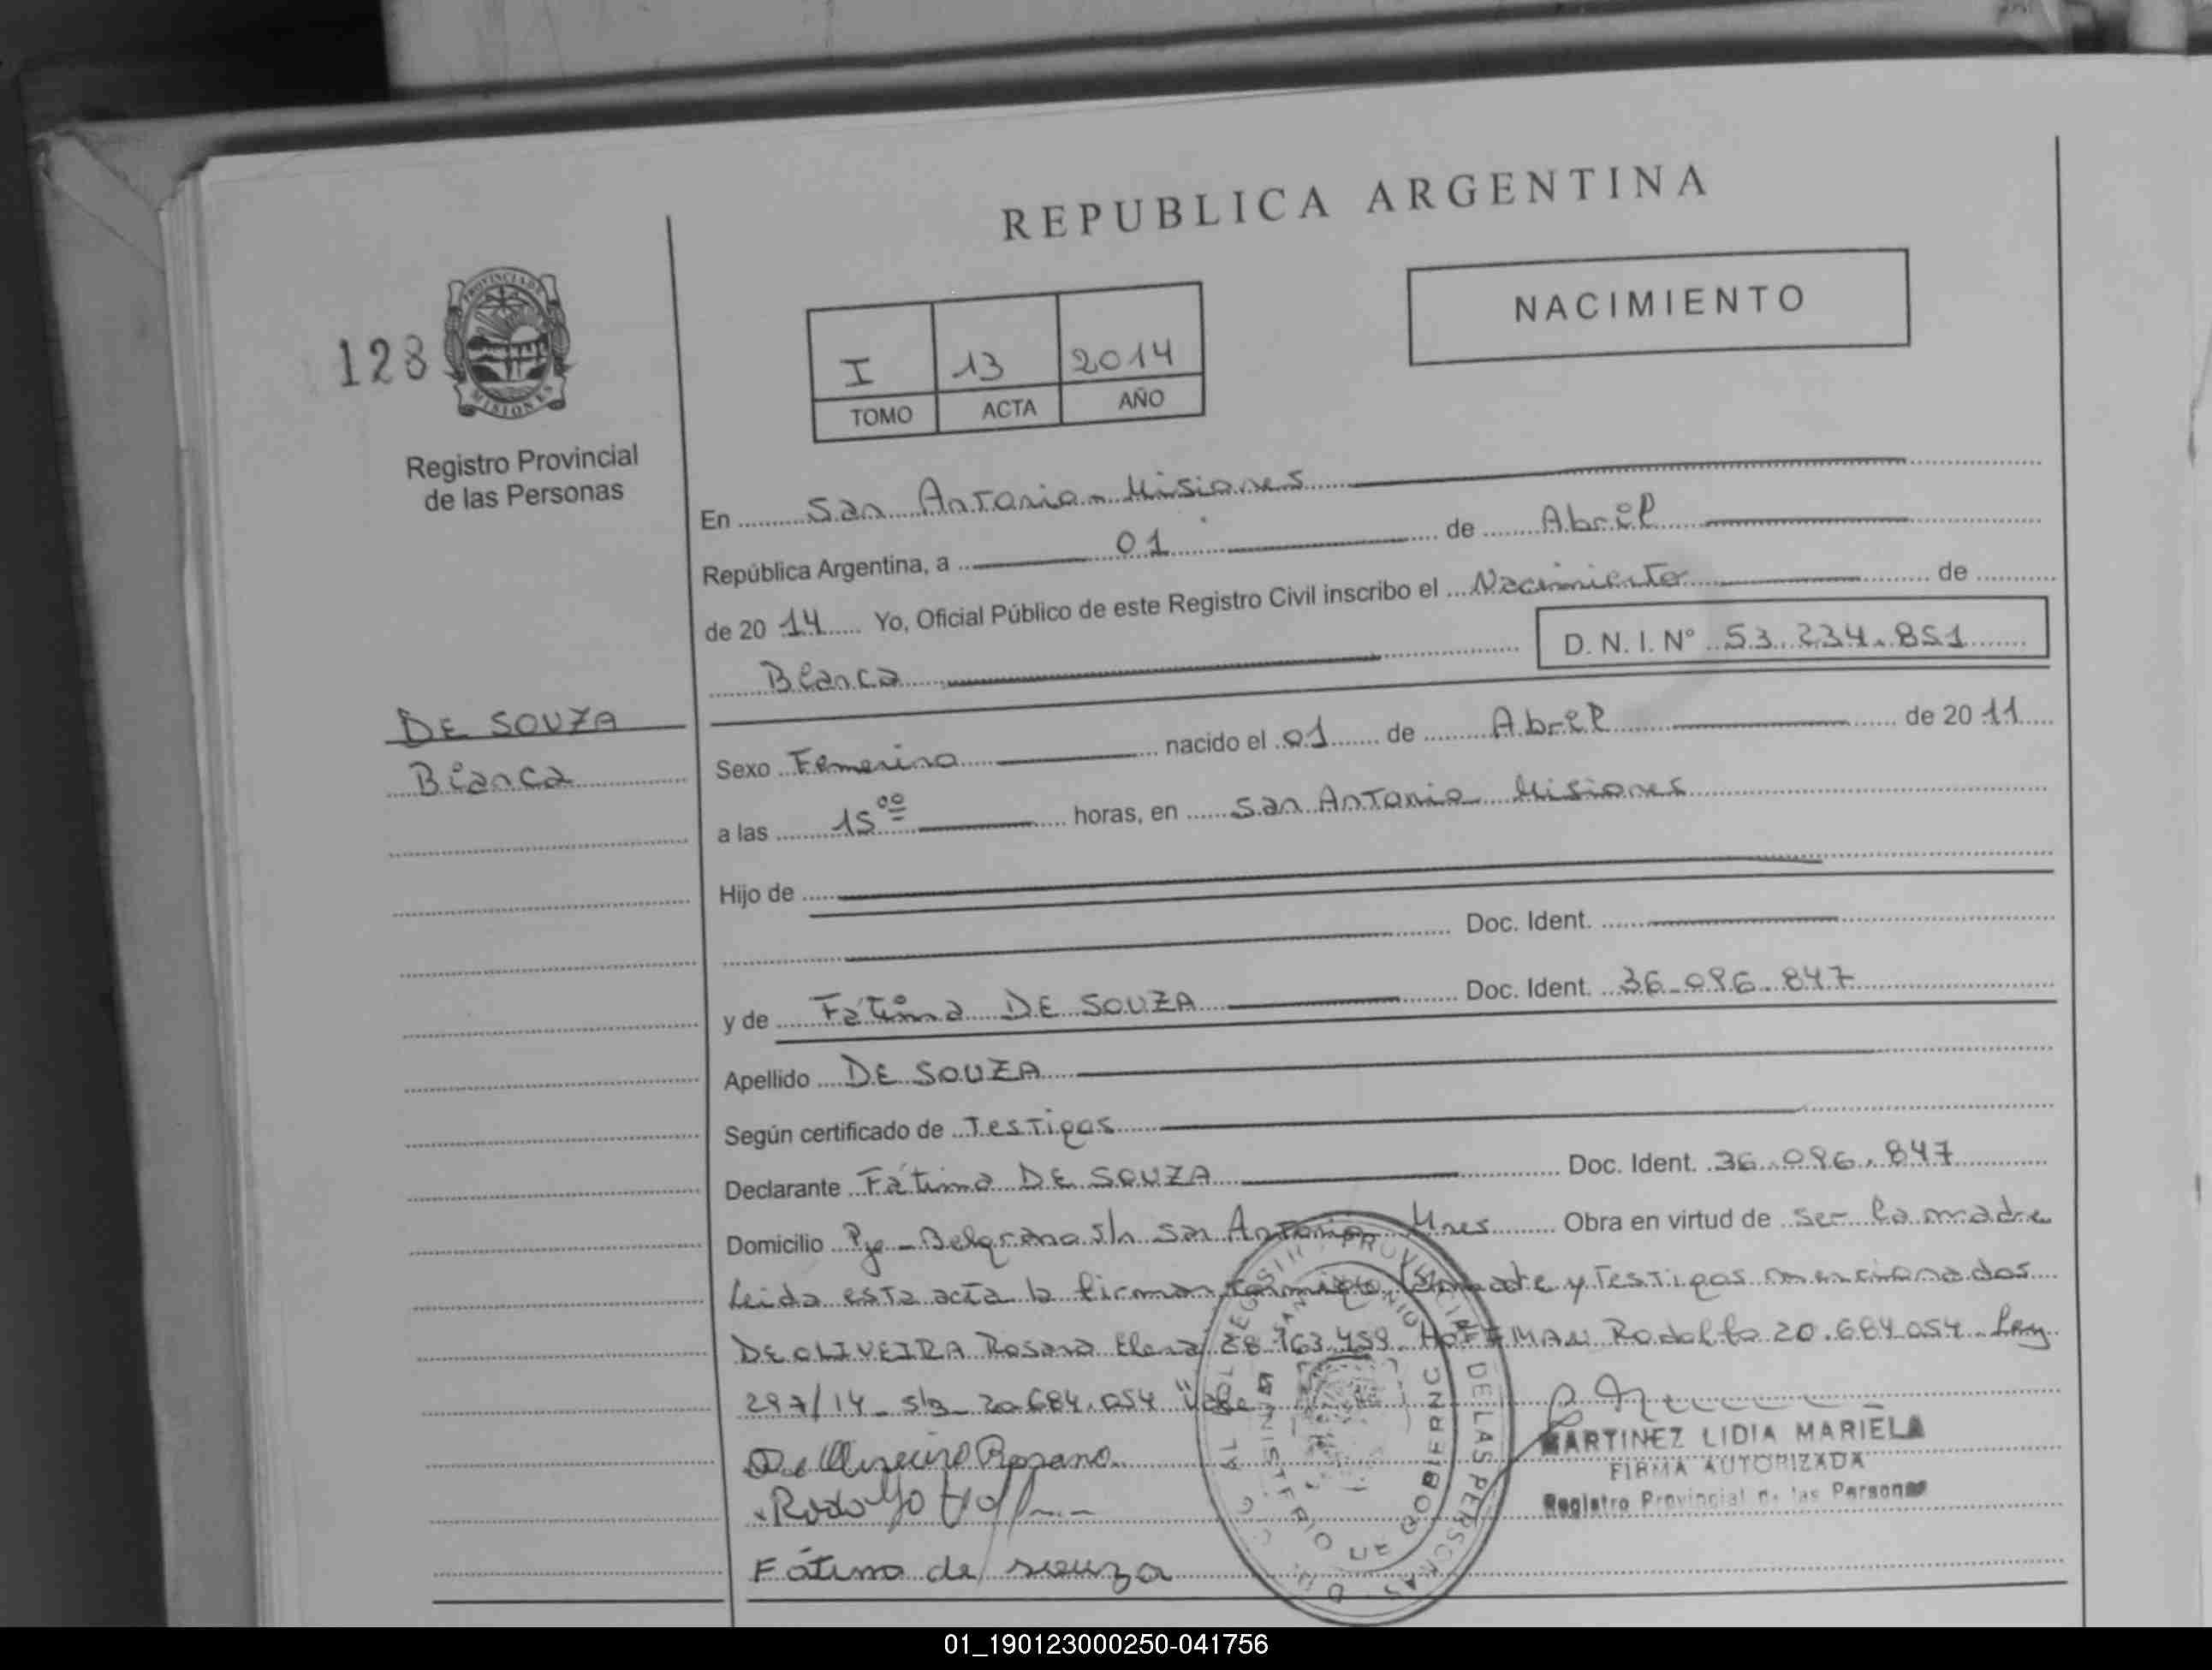 REPUBLICA ARGENTINA
NACIMIENTO
128
PROVINCIA DE
MISIONES
I 13 2014
TOMO ACTA AÑO
Registro Provincial
de las Personas
En San Antonio - Misiones
República Argentina, a 01 de Abril
de 20 14 Yo, Oficial Público de este Registro Civil inscribo el Nacimiento de
Bianca D. N. I. N° 53.234.851
DE SOUZA
Bianca
Sexo Femenino nacido el 01 de Abril de 20 11
a las 15 00 horas, en San Antonio Misiones
Hijo de
Doc. Ident.
y de Fátima DE SOUZA Doc. Ident. 36.096.847
Apellido DE SOUZA
Según certificado de Testigos
Declarante Fátima DE SOUZA Doc. Ident. 36.096.847
Domicilio Pje - Belgrano s/n San Antonio Mnes Obra en virtud de ser la madre
Leida esta acta la firman conmigo la madre y Testigos mencionados
DE OLIVEIRA Rosana Elena 28.163.459 HOFFMAN Rodolfo 20.684.054 Ley
297/14 - s/r 20.684.054 "Vale
De Oliveira Rosana
Rodolfo Hoff
Fátima de souza
MARTINEZ LIDIA MARIELA
FIRMA AUTORIZADA
Registro Provincial de las Personas
01_190123000250-041756